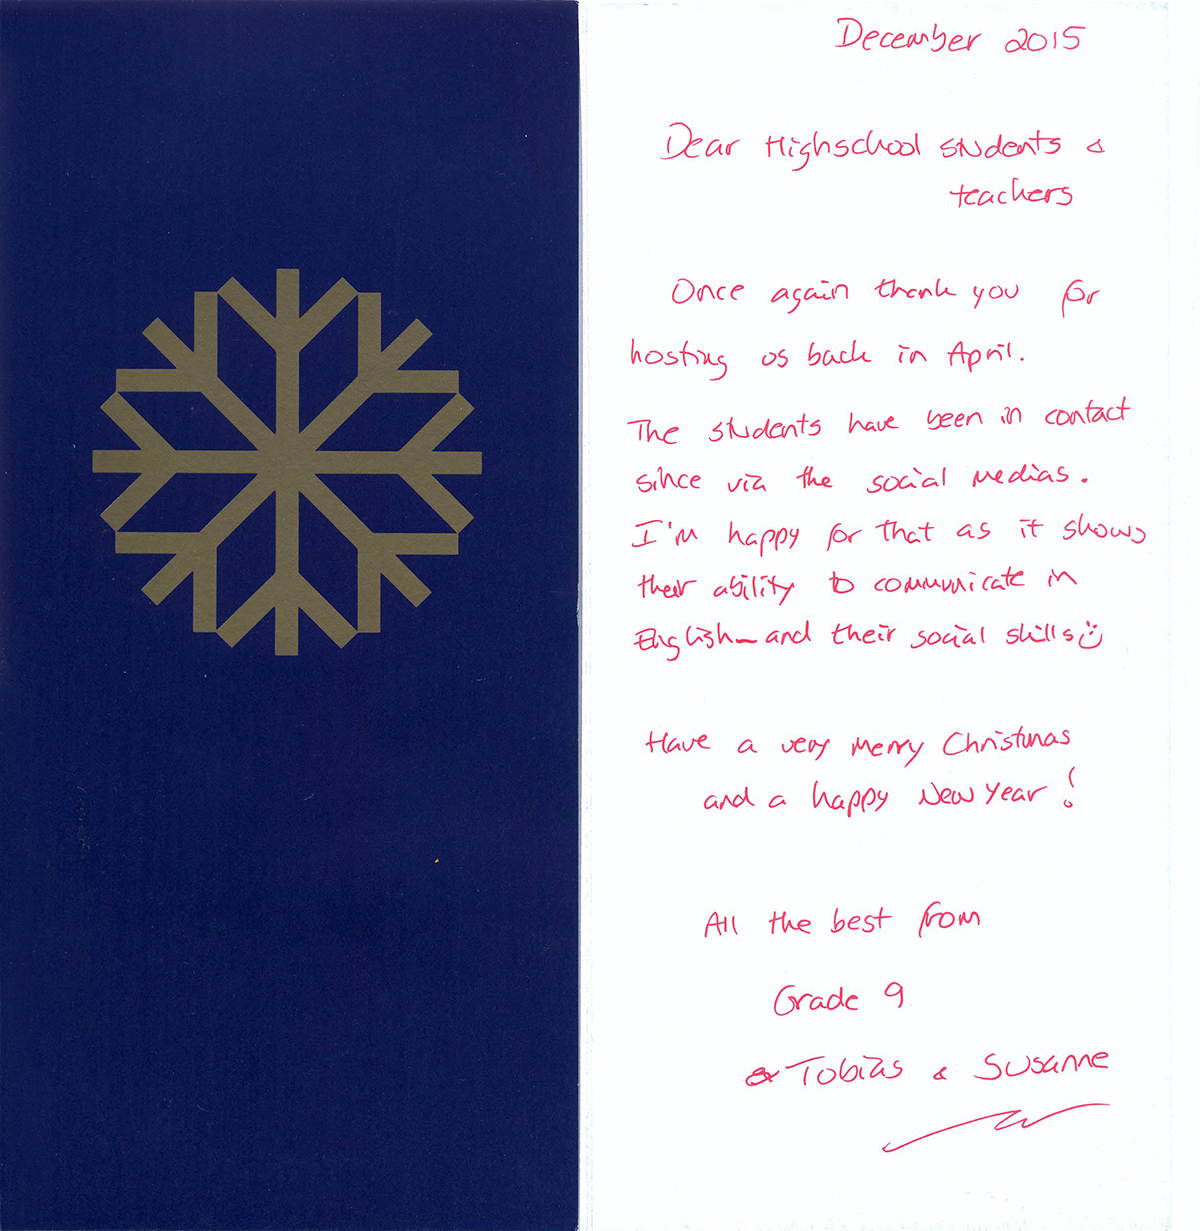 December 2015
Dear Highschool students &
teachers
Once again thank you for
hosting us back in April.
The students have been in contact
since via the social medias.
I'm happy for that as it shows
their ability to communicate in
English – and their social skills☺
Have a very Merry Christmas
and a happy New Year!
All the best from
Grade 9
& Tobias & Susanne